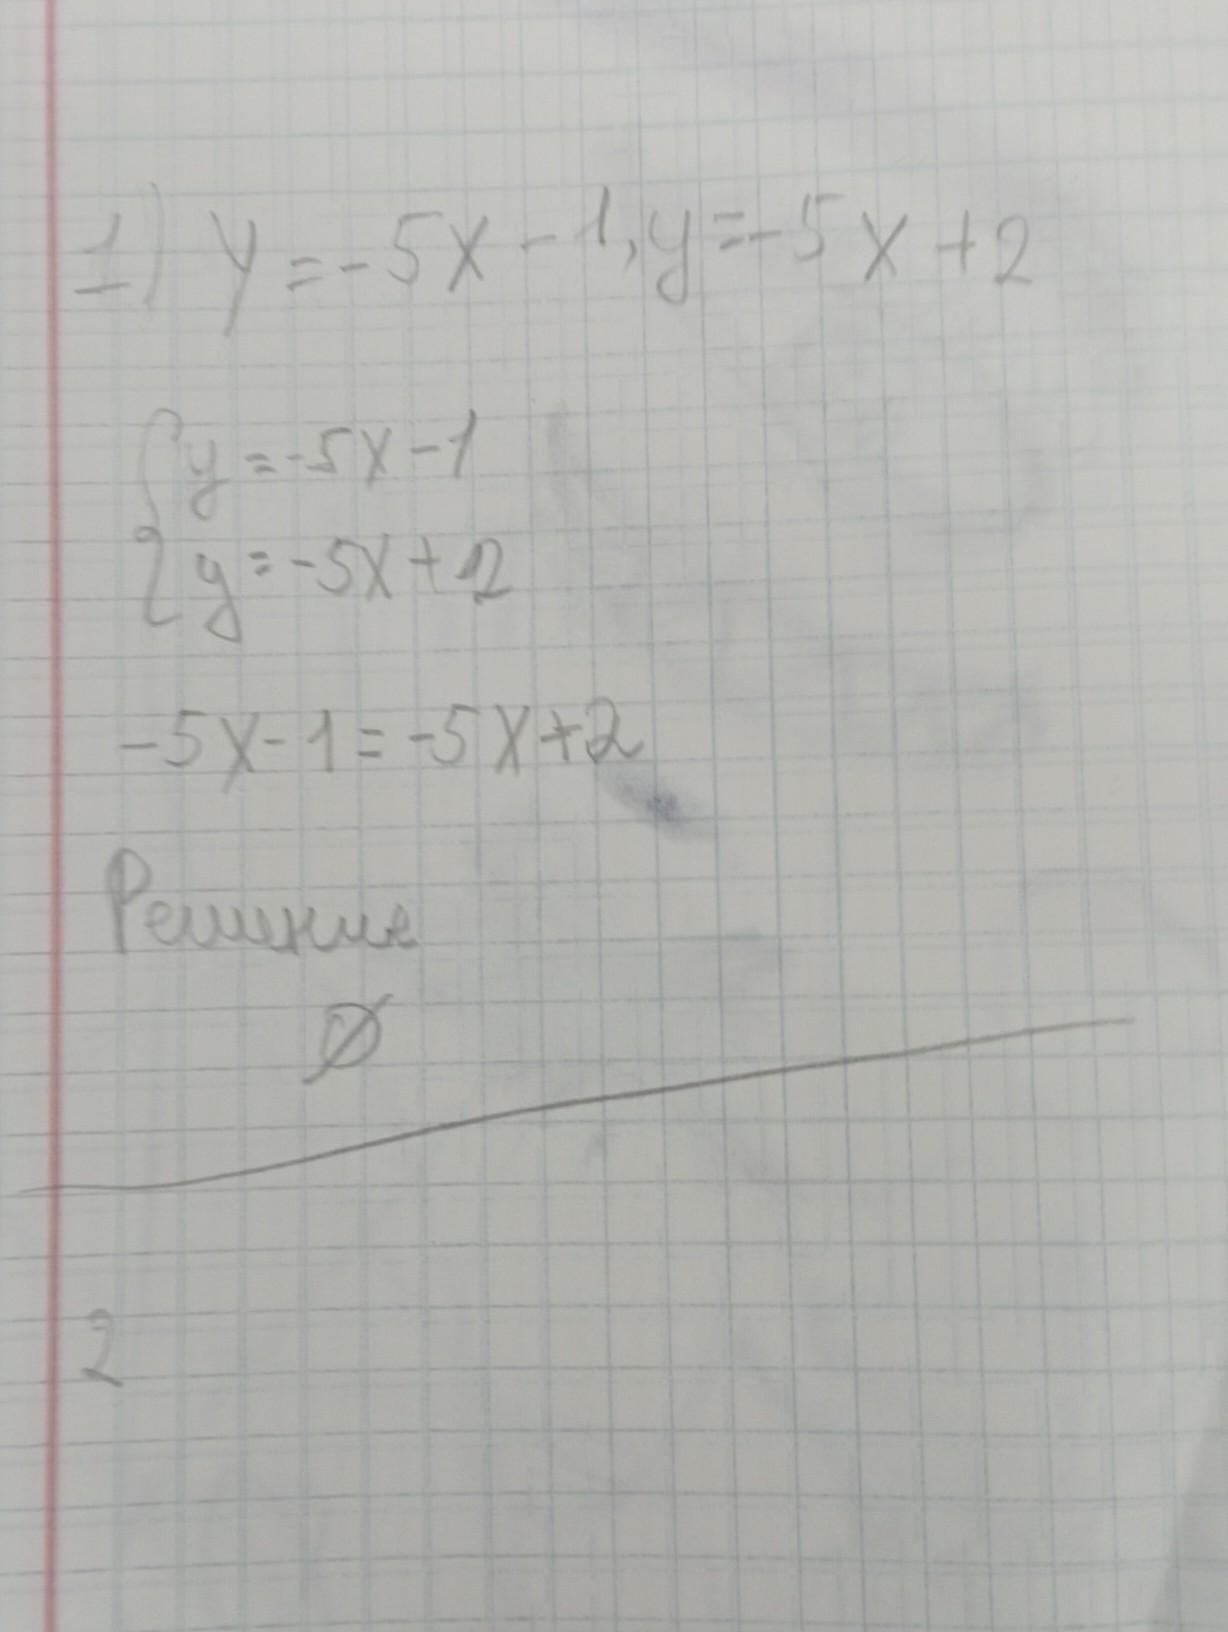 1) y = -5x - 1, y = -5x + 2
{ y = -5x - 1
y = -5x + 2
-5x - 1 = -5x + 2
Решение
∅
2